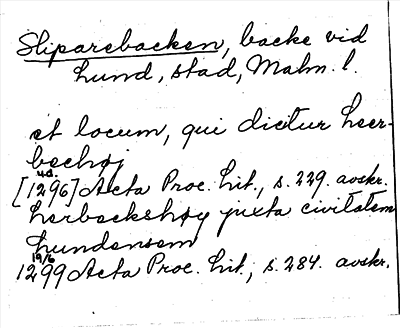 Sliparebacken, backe vid
Lund, stad, Malm. l.
et locum, qui dicitur Leer-
bechøj
u.d.
[1296] Acta Proc. Lit., s. 229. avskr.
Lerbeckshøy juxta civitatem
Lundensem
19/6
1299 Acta Proc. Lit., s. 284. avskr.